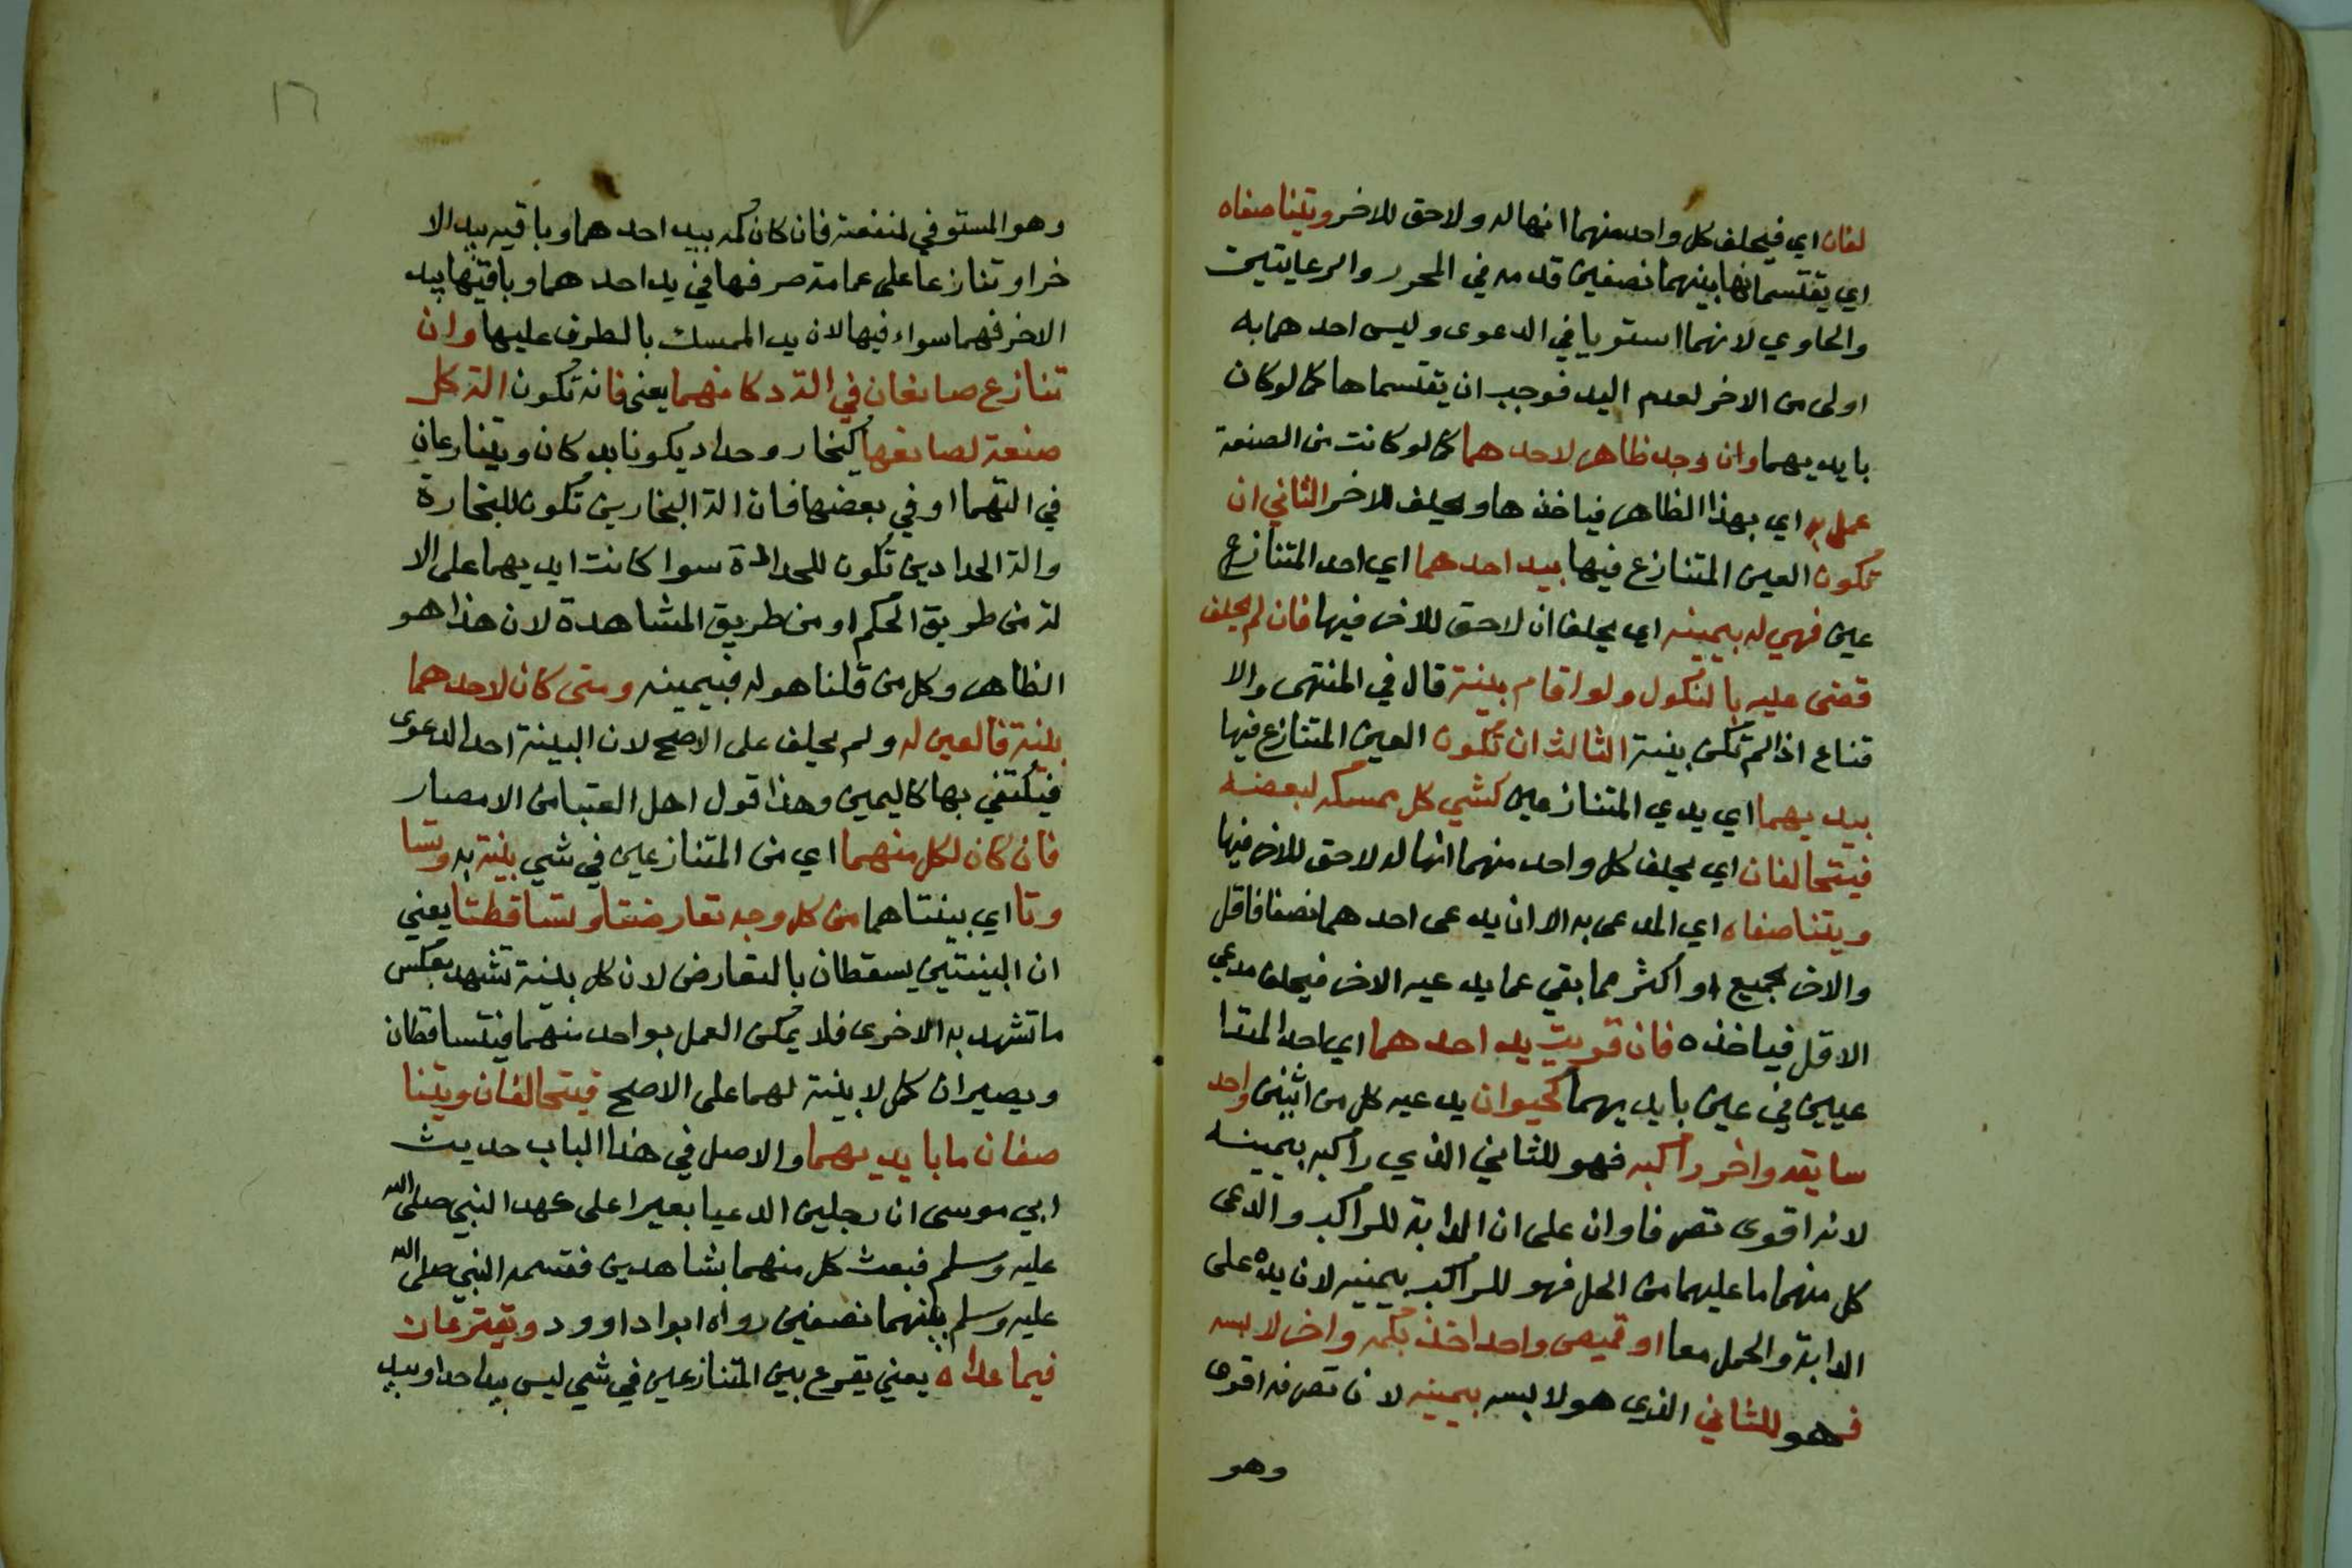 لفان اي فيحلف كل واحد منهما انها له ولا حق للاخر ويتناصفاه
اي يقتسمانها بينهما نصفين قدمه في المحرر والرعايتين
والحاوي لانهما استويا في الدعوى وليس احدهما به
اولى من الاخر لعدم اليد فوجب ان يقتسماها كما لو كان
بايديهما وان وجد ظاهر لاحدهما كما لو كانت من الصنعة
عمل به اي بهذا الظاهر فياخذها ويحلف للاخر الثاني ان
تكون العين المتنازع فيها بيد احدهما اي احد المتنازع
عين فهي له بيمينه اي يحلف ان لا حق للاخر فيها فان لم يحلف
قضى عليه بالنكول ولو اقام بينة قال في المنتهى والا
قناع اذا لم تكن بينة الثالث ان تكون العين المتنازع فيها
بيديهما اي يدي المتنازعين كشي كل ممسكه لبعضه
فيتحالفان اي يحلف كل واحد منهما انها له لا حق للاخر فيها
ويتناصفاه اي المدعى به الا ان يدعى احدهما نصفا فاقل
والاخر لجميع او اكثر مما بقي عما يدعيه الاخر فيحلف مدعي
الاقل فياخذه فان قويت يد احدهما اي احد المتدا
عيين في عين بايديهما كحيوان يدعيه كل من اثنين واحد
سايقه واخر راكبه فهو للثاني الذي راكبه بيمينه
لانه اقوى تصرفا وان على ان الدابة للراكب والدعى
كل منهما ما عليهما من الحمل فهو للراكب بيمينه لان يده على
الدابة والحمل معا او قميص واحد اخذ بكمه واخر لابسه
فهو للثاني الذي هو لابسه بيمينه لان تصرفه اقوى
وهو
١٦
وهو المستوفي لمنفعته فان كان كمه بيد احدهما وباقيه بيد الا
خر او تنازعا على عمامة صرفها في يد احدهما وباقيتها بيد
الاخر فهما سواء فيها لان يد الممسك بالطرف عليها وان
تنازع صانعان في الة دكانهما يعنى فانه تكون الة كل
صنعة لصانعها كنجار وحداد يكونا بدكان ويتنازعان
في التهما او في بعضها فان الة النجارين تكون للنجارة
والة الحدادين تكون للحدادة سوا كانت ايديهما على الا
لة من طريق الحكم او من طريق المشاهدة لان هذا هو
الظاهر وكل من قلنا هو له فبيمينه ومتى كان لاحدهما
بينة فالعين له ولم يحلف على الاصح لان البينة احد الدعوى
فيكتفي بها كاليمين وهذا قول اهل الفتيا من الامصار
فان كان لكل منهما اي من المتنازعين في شي بينة به وتسا
وتا اي بينتاهما من كل وجه تعارضتا وتساقطتا يعني
ان البينتين يسقطان بالتعارض لان كل بينة تشهد بعكس
ما تشهد به الاخرى فلا يمكن العمل بواحد منهما فيتساقطان
ويصيران كمن لا بينة لهما على الاصح فيتحالفان ويتنا
صفان ما بايديهما والاصل في هذا الباب حديث
ابي موسى ان رجلين ادعيا بعيرا على عهد النبي صلى الله
عليه وسلم فبعث كل منهما بشاهدين فقسمه النبي صلى الله
عليه وسلم بينهما نصفين رواه ابو اداوود ويقترعان
فيما عداه يعني يقرع بين المتنازعين في شي ليس بيد احد او بيد